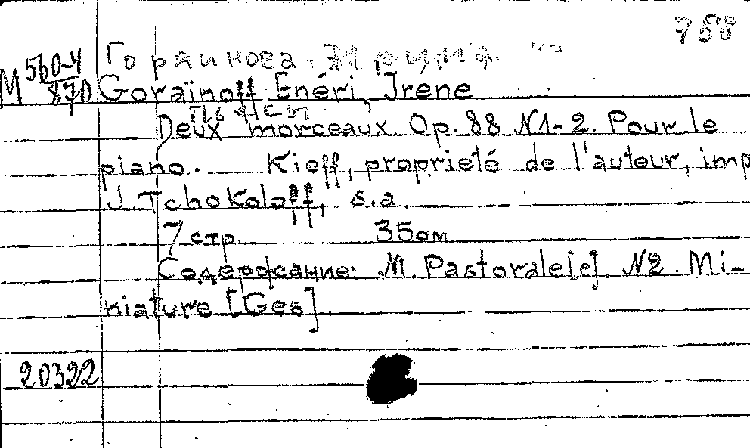 758
Горяинова Ирина
M 560-4
87D
Goraïnoff Enéri, Irene
Пьесы
Deux morceaux Op. 88 N1-2. Pour le
piano. Kieff, proprieté de l'auteur, imp
J. Tchokoloff, s.a.
7 стр. 35см
Содержание: N1. Pastorale[e] N2 Mi-
niature [Ges]
20322